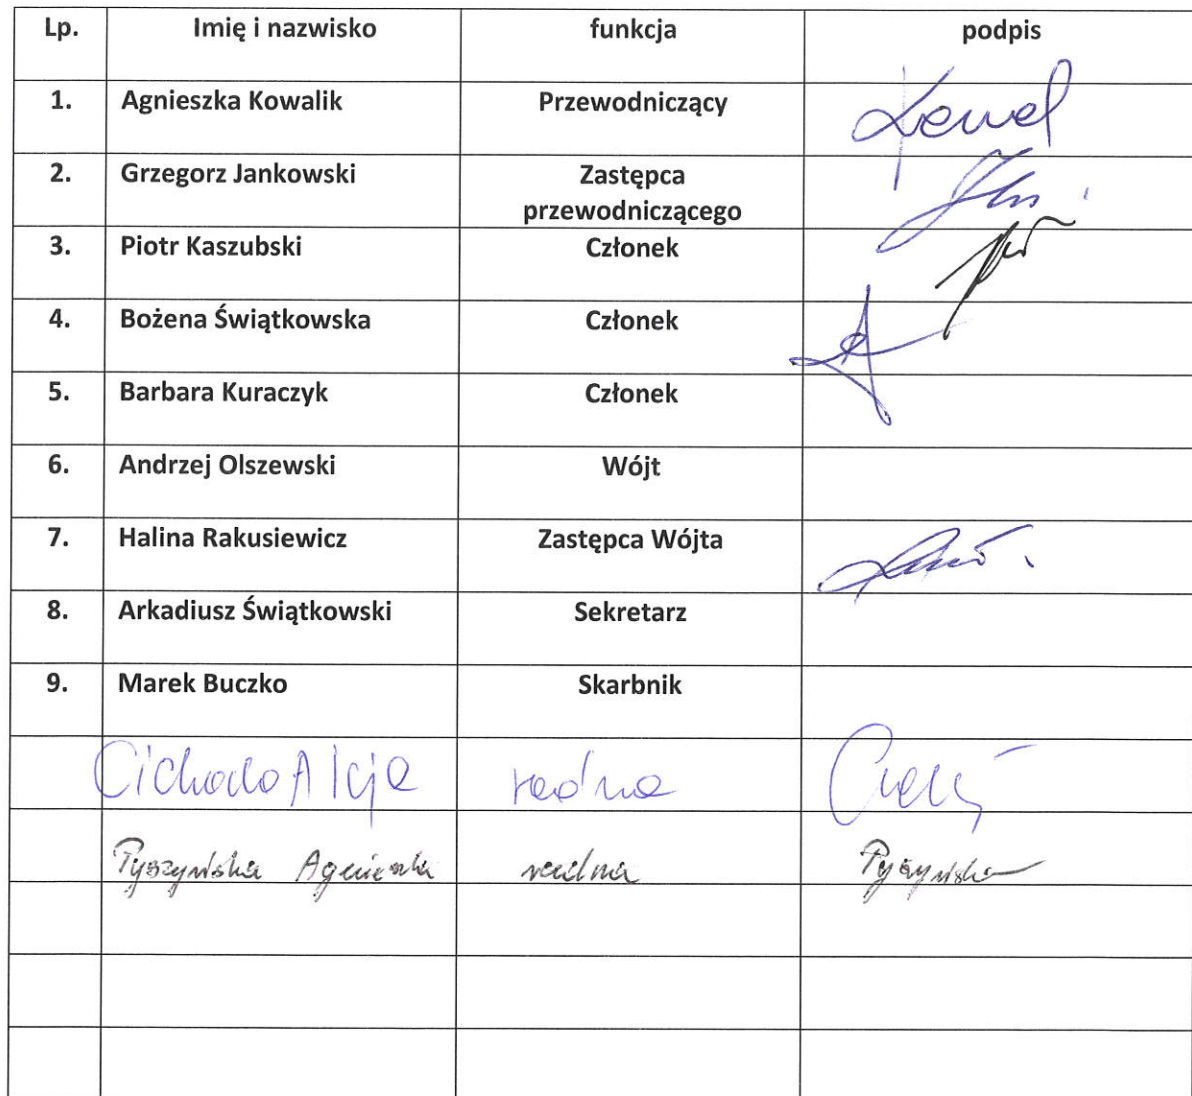 Lp. Imię i nazwisko funkcja podpis
1. Agnieszka Kowalik Przewodniczący
2. Grzegorz Jankowski Zastępca
przewodniczącego
3. Piotr Kaszubski Członek
4. Bożena Świątkowska Członek
5. Barbara Kuraczyk Członek
6. Andrzej Olszewski Wójt
7. Halina Rakusiewicz Zastępca Wójta
8. Arkadiusz Świątkowski Sekretarz
9. Marek Buczko Skarbnik
Alicja radna
Pyszyńska Agnieszka radna Pyszyńska